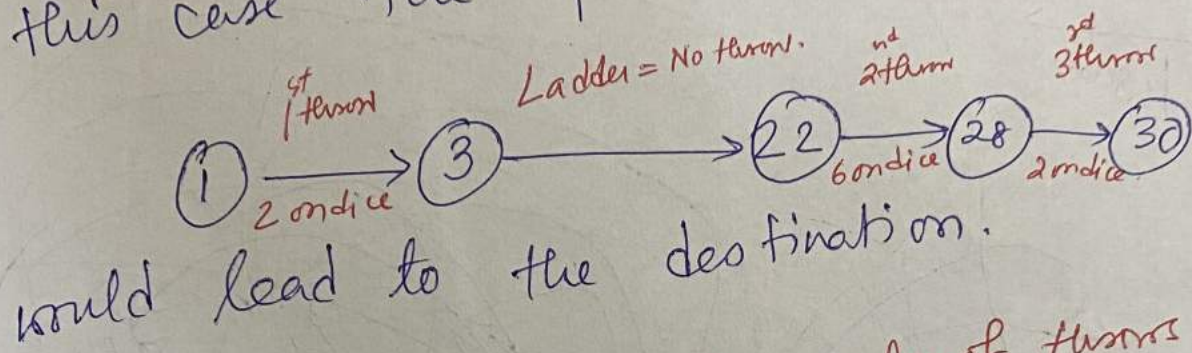 this case
1st throw
Ladder = No throw.
2nd throw
3rd throw
1
3
22
28
30
2 on dice
6 on dice
2 on dice
would lead to the destination.
of throws